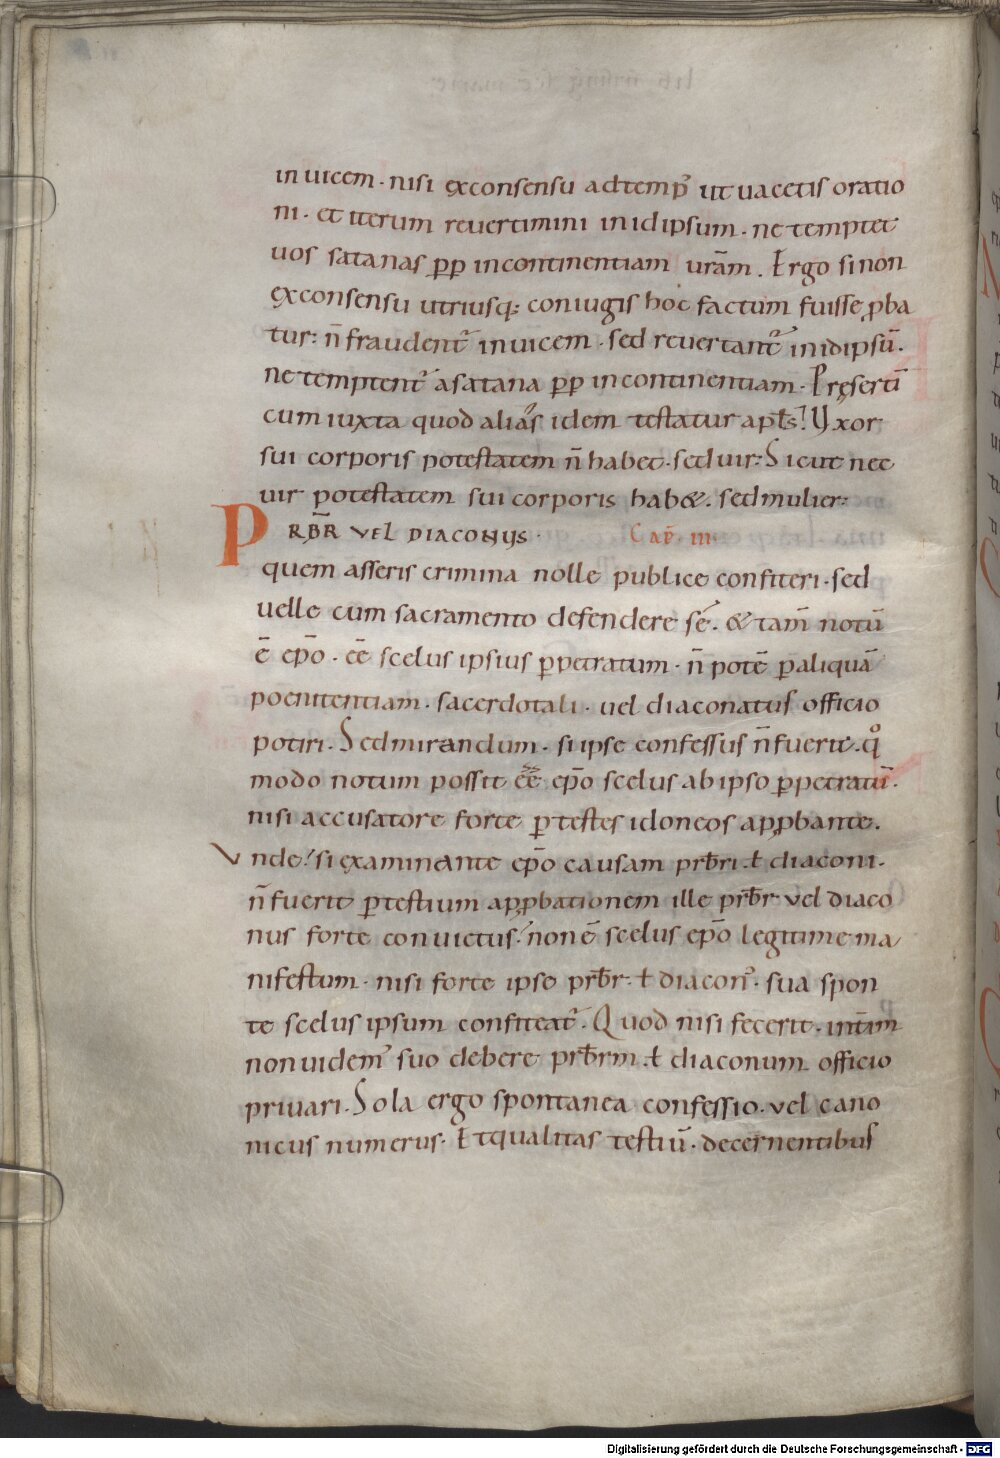 inuicem · nisi ęxconsensu adtemp̄ ut uacetis oratio
ni · et iterum reuertimini inidipsum · ne temptet
uos satanas ꝓp incontinentiam ur̄am . Ergo sinon
ęxconsensu utriusq; coniugis hoc factum fuisse ꝓba
tur: n̄ fraudent᷒ inuicem · sed reuertant᷒ inidipsū .
ne temptent᷒ asatana ꝓp incontinentiam · Pręsertī
cum iuxta quod alias idem testatur apl̄s : Uxor
sui corporis potestatem n̄ habet · sed uir: Sicut nec
uir potestatem sui corporis hab& . sed mulier:
PRB̄R VEL DIACONIJS · Cap̄ · III ·
quem asseris crimina nolle publice confiteri · sed
uelle cum sacramento defendere se . & tam̄ notū
ē ep̄o · eē scelus ipsius ꝑpetratum · n̄ potē ꝑ aliquā
poenitentiam · sacerdotali · uel diaconatus officio
potiri · Sed mirandum · si ipse confessus n̄ fuerit · qͦ
modo notum possit eē ep̄o scelus ab ipso ꝑpetratū .
nisi accusatore forte ꝑ testes idoneos apꝓbante .
Vnde ? si ęxaminante ep̄o causam prb̄ri · ł diaconi ·
n̄ fuerit ꝑ testium apꝓbationem ille prb̄r vel diaco
nus forte conuictus : non ē scelus ep̄o legitime ma
nifestum · nisi forte ipse prb̄r · ł diacon᷒ · sua spon
te scelus ipsum confiteat᷒ · Quod nisi fecerit · int̄im
non uidem᷒ suo debere prb̄rm · ł diaconum officio
priuari · Sola ergo spontanea confessio · vel cano
nicus numerus · Et qualitas testiū · decernentibus
Digitalisierung gefördert durch die Deutsche Forschungsgemeinschaft - DFG